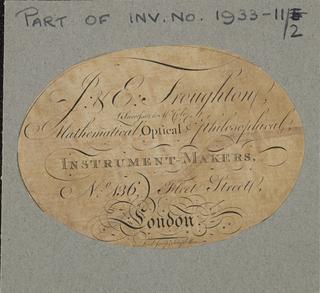 PART OF INV. NO. 1933-11/2
J. & E. Troughton,
Successors to
Mathematical Optical & Philosophical,
INSTRUMENT-MAKERS,
No. 136, Fleet Street,
London.